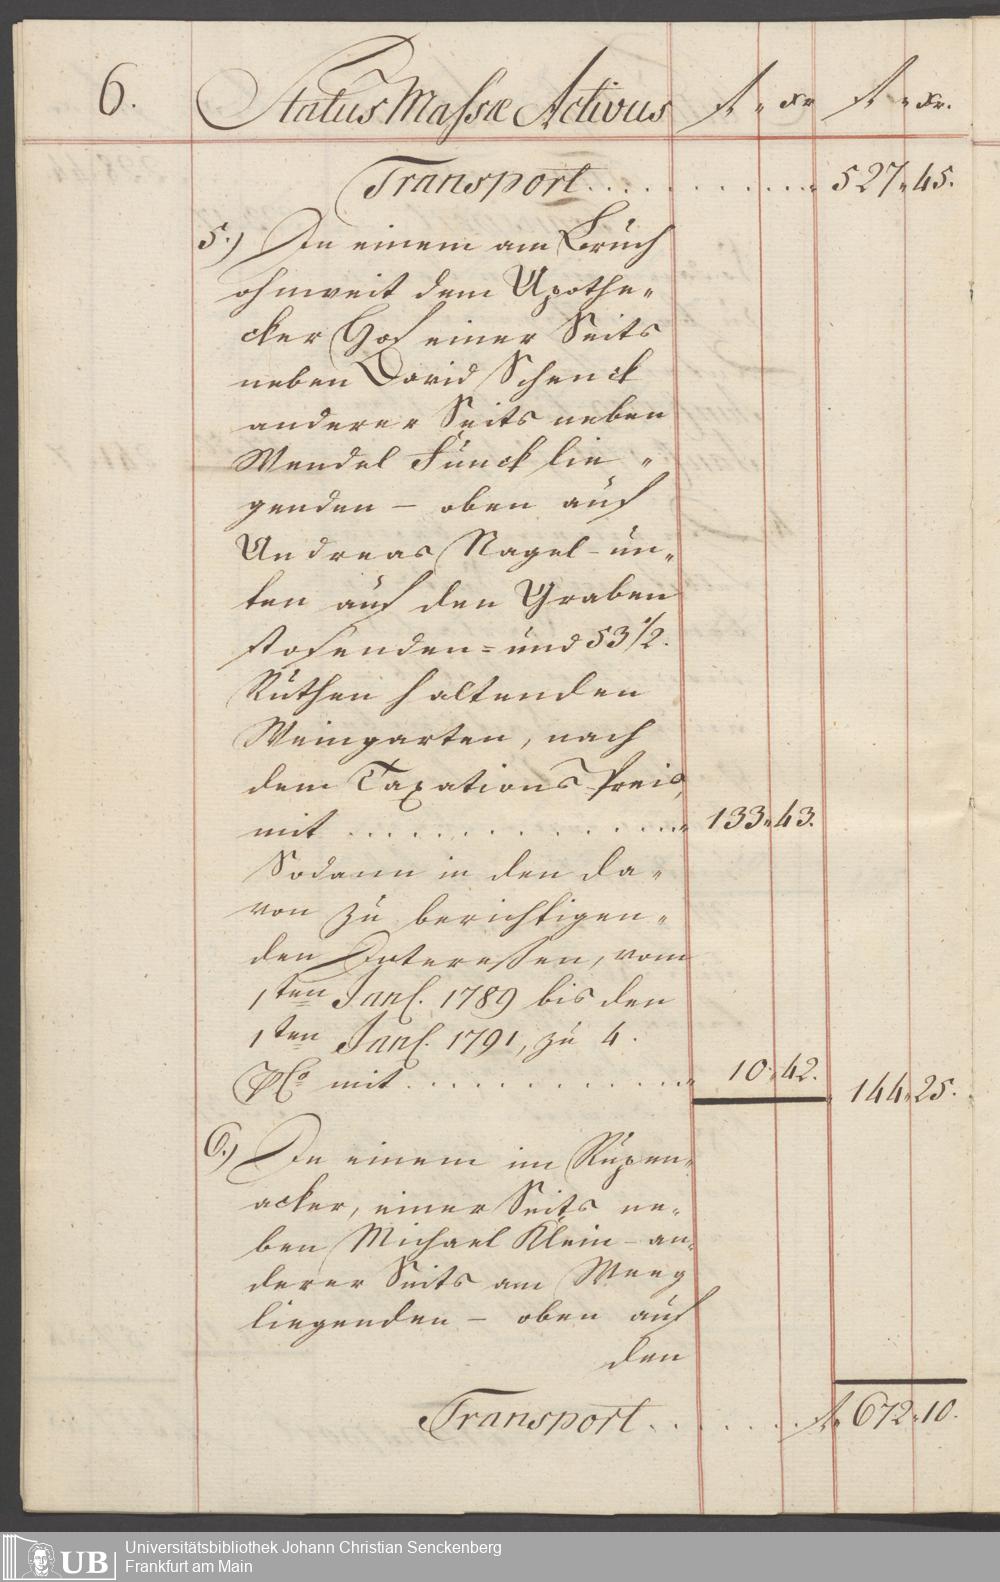 6. Status Massæ Activus f " xr f " xr.
Transport . . . . . . . . . . . . " 527 " 45.
5.) In einem am Bruch
ohnweit dem Apothe„
cker Hof einer Seits
neben David Schenck
anderer Seits neben
Wendel Funck lie „
genden – oben auf
Andreas Nagel – un„
ten auf den Graben
stosenden = und 53 1/2.
Ruthen haltenden
Weingarten, nach
dem Taxations Preis,
mit . . . . . . . . . . . . . " 133 " 43.
Sodann in den da„
von zu berichtigen„
den Interessen, vom
1ten Jan. 1789 bis den
1ten Jan. 1791, zu 4.
pCo mit . . . . . . . . . . . . " 10 " 42. " 144 " 25.
6.) In einem im Rupen„
acker, einer Seits ne„
ben Michael Klein – an„
derer Seits am Weeg
liegenden – oben auf
den
Transport . . . . . . f " 672 " 10.
UB Universitätsbibliothek Johann Christian Senckenberg
Frankfurt am Main